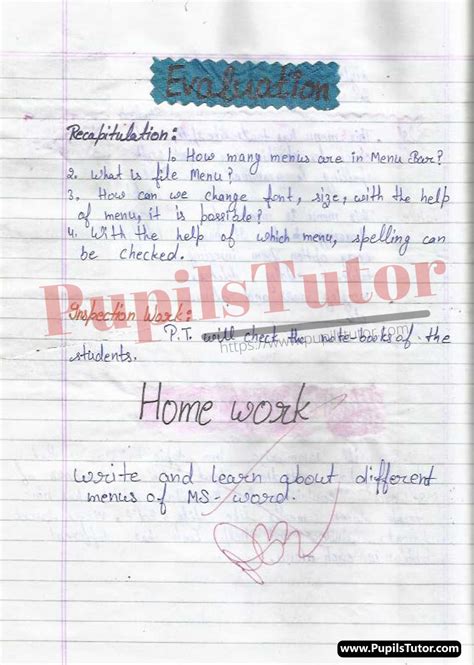 Evaluation
Recapitulation:
1. How many menus are in Menu Bar?
2. What is file Menu?
3. How can we change font, size, with the help
of menu, it is possible?
4. With the help of which menu, spelling can
be checked.
PupilsTutor
https://www.pupilstutor.com
Inspection Work:
P.T. will check the note-books of the
students.
Home work
write and learn about different
menus of MS-word.
www.PupilsTutor.com